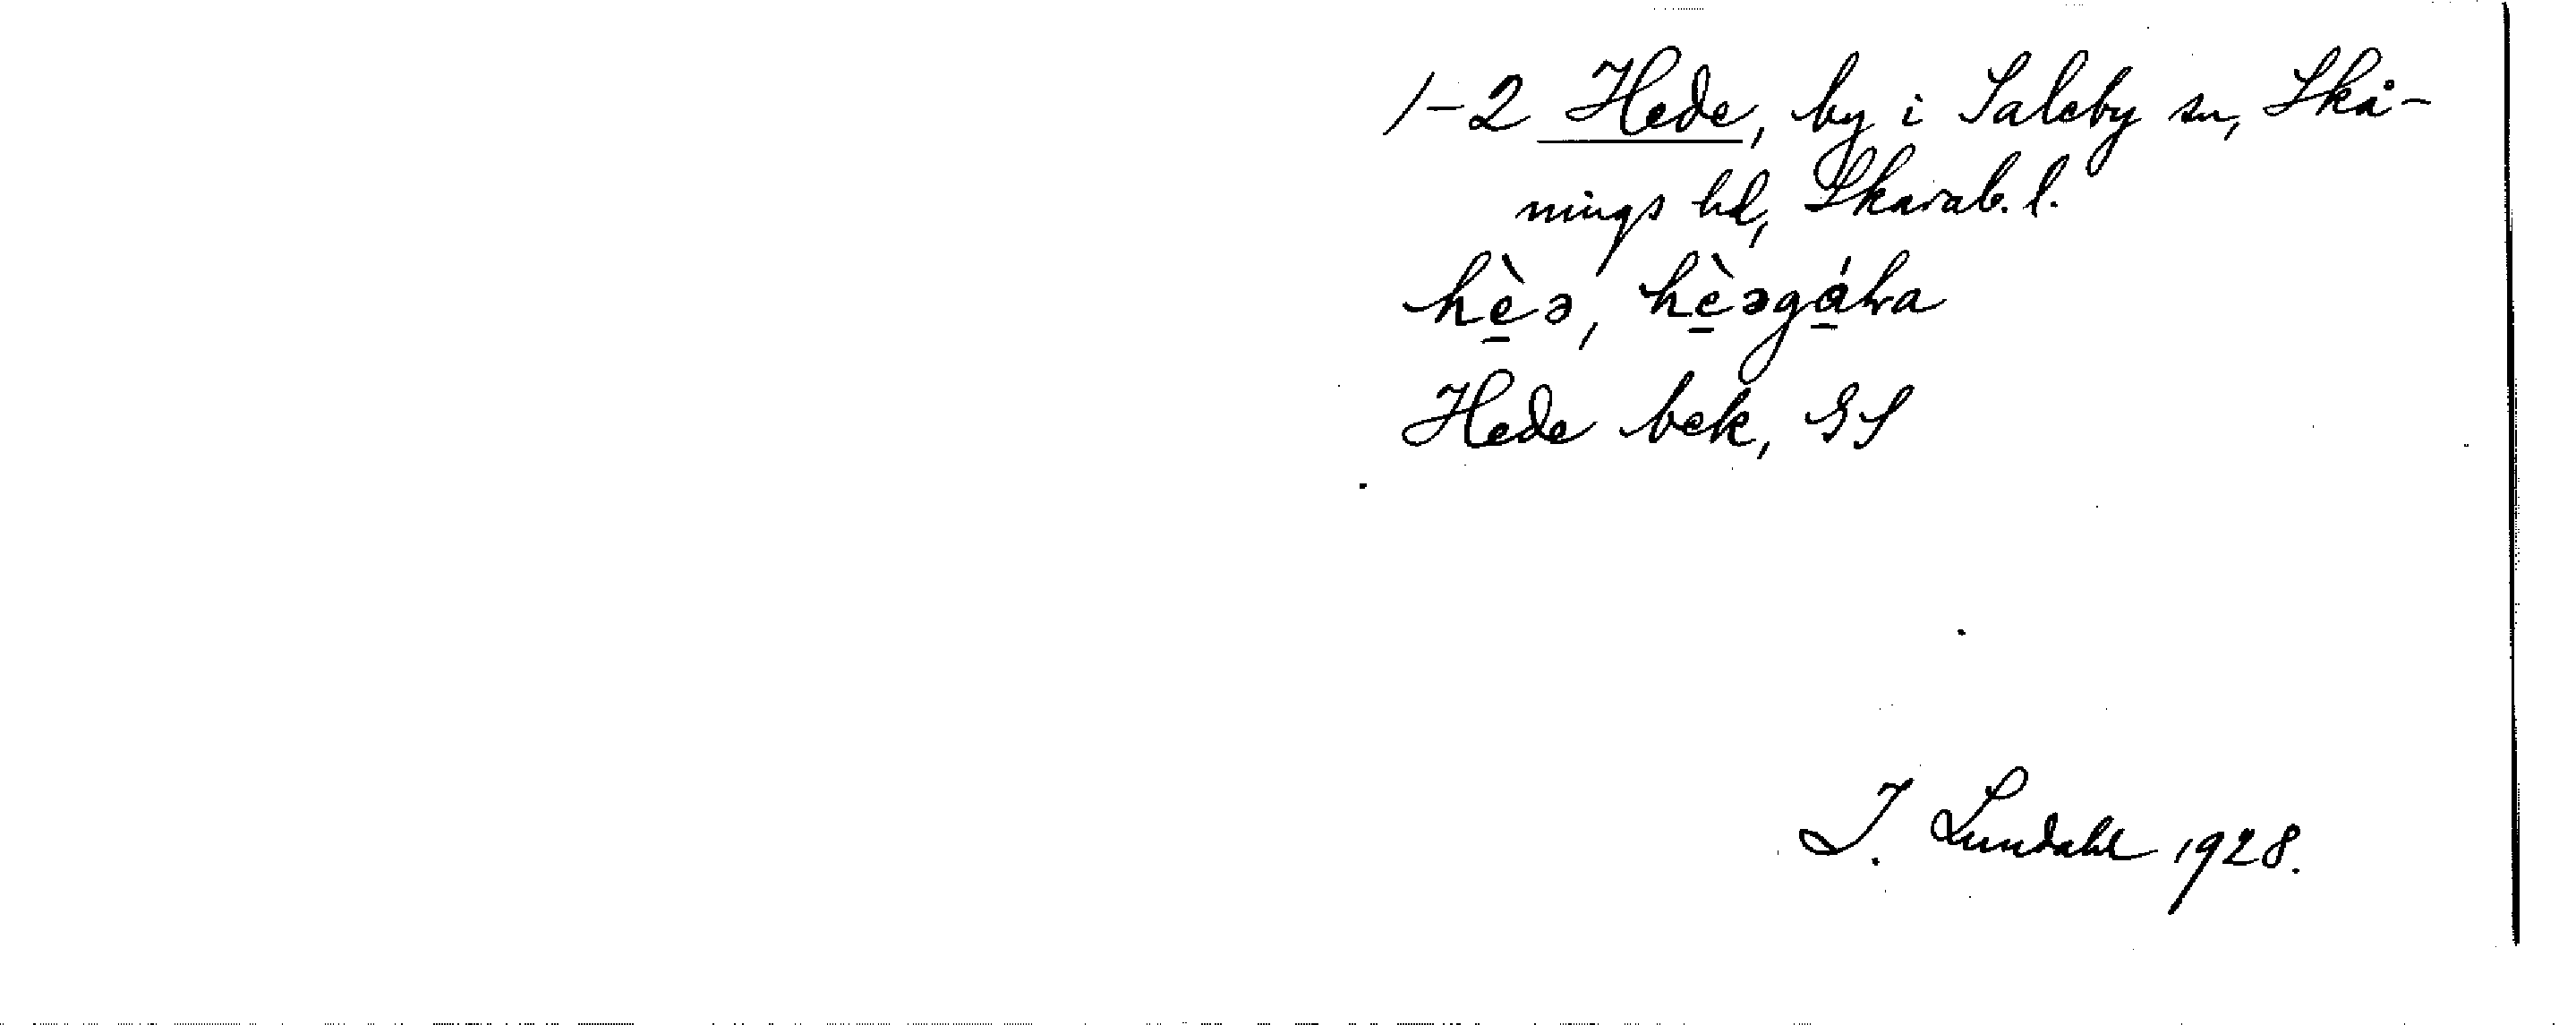 1-2 Hede, by i Saleby sn, Skå-
nings hd, Skarab. l.
hè̱ə, hè̱əgá̱ꞎa
Hede bek, GS
I. Lundahl 1928.